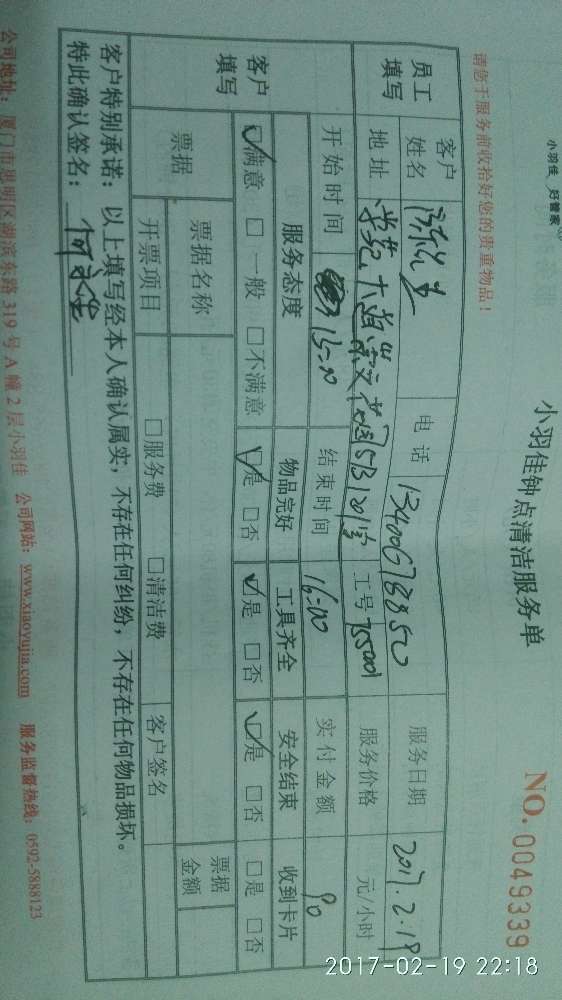 小羽佳 好管家
小羽佳钟点清洁服务单
NO. 0049339
请您于服务前收拾好您的贵重物品！
员工填写 客户姓名 电话 13400678850 服务日期 2017.2.19
地址 5B1201室 工号 75001 服务价格 元/小时
客户填写 开始时间 15:00 结束时间 16:00 实付金额 90
服务态度 物品完好 工具齐全 安全结束 收到卡片
☑满意 □一般 □不满意 ☑是 □否 ☑是 □否 ☑是 □否 □是 □否
票据 票据名称 票据金额
开票项目 □服务费 □清洁费 客户签名
客户特别承诺：以上填写经本人确认属实，不存在任何纠纷，不存在任何物品损坏。
特此确认签名：
公司地址：厦门市思明区湖滨东路319号A幢2层小羽佳 公司网站：www.xiaoyujia.com 服务监督热线：0592-5888123
2017-02-19 22:18